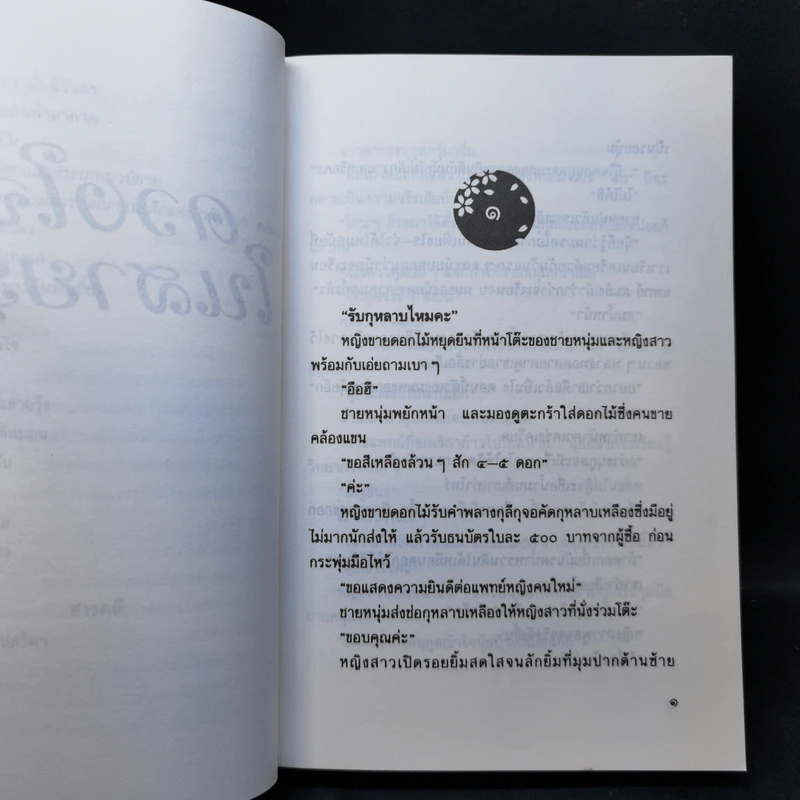 ๑
“รับกุหลาบไหมคะ”
หญิงขายดอกไม้หยุดยืนที่หน้าโต๊ะของชายหนุ่มและหญิงสาว
พร้อมกับเอ่ยถามเบา ๆ
“อือฮึ”
ชายหนุ่มพยักหน้า และมองดูตะกร้าใส่ดอกไม้ซึ่งคนขาย
คล้องแขน
“ขอสีเหลืองล้วน ๆ สัก ๔–๕ ดอก”
“ค่ะ”
หญิงขายดอกไม้รับคำพลางกุลีกุจอคัดกุหลาบเหลืองซึ่งมีอยู่
ไม่มากนักส่งให้ แล้วรับธนบัตรใบละ ๕๐๐ บาทจากผู้ซื้อ ก่อน
กระพุ่มมือไหว้
“ขอแสดงความยินดีต่อแพทย์หญิงคนใหม่”
ชายหนุ่มส่งช่อกุหลาบเหลืองให้หญิงสาวที่นั่งร่วมโต๊ะ
“ขอบคุณค่ะ”
หญิงสาวเปิดรอยยิ้มสดใสจนลักยิ้มที่มุมปากด้านซ้าย
๑